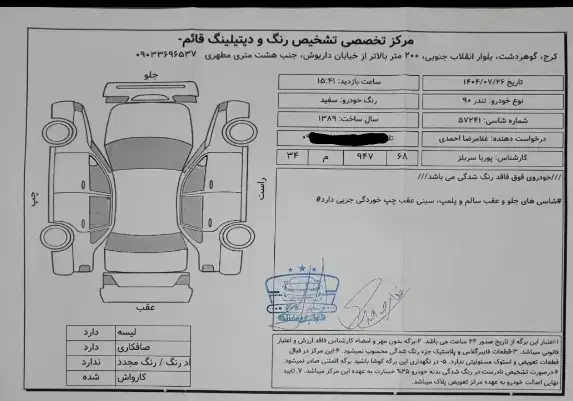 مرکز تخصصی تشخیص رنگ و دیتیلینگ قائم-
کرج، گوهردشت، بلوار انقلاب جنوبی، ۲۰۰ متر بالاتر از خیابان داریوش، جنب هشت متری مطهری ۰۹۰۳۳۶۹۶۵۳۷
تاریخ ۱۴۰۴/۰۷/۲۶
ساعت بازدید: ۱۵:۴۱
نوع خودرو: تندر ۹۰
رنگ خودرو: سفید
شماره شاسی: ۵۷۲۴۱
سال ساخت: ۱۳۸۹
درخواست دهنده: غلامرضا احمدی
کارشناس: پوریا سربلز
۶۸ ۹۴۷ م ۳۴
///خودروی فوق فاقد رنگ شدگی می باشد///
#شاسی های جلو و عقب سالم و پلمپ، سینی عقب چپ خوردگی جزیی دارد#
جلو
راست
چپ
عقب
لیسه دارد
صافکاری دارد
اد رنگ / رنگ مجدد ندارد
کارواش شده
۱:اعتبار این برگه از تاریخ صدور ۲۴ ساعت می باشد. ۲-برگه بدون مهر و امضاء کارشناس فاقد ارزش و اعتبار
قانونی میباشد. ۳-قطعات فایبرگلاس و پلاستیک جزء رنگ شدگی محسوب نمیشود. ۴-این مرکز در قبال
قطعات تعویض و استوک مسئولیتی ندارد. ۵- در نگهداری این برگه کوشا باشید برگه المثنی صادر نمیشود.
۶-درصورت تشخیص نادرست در رنگ شدگی بدنه خودرو ۲۵% خسارت به عهده این مرکز میباشد. ۷ تایید
نهایی اصالت خودرو به عهده مرکز تعویض پلاک میباشد.